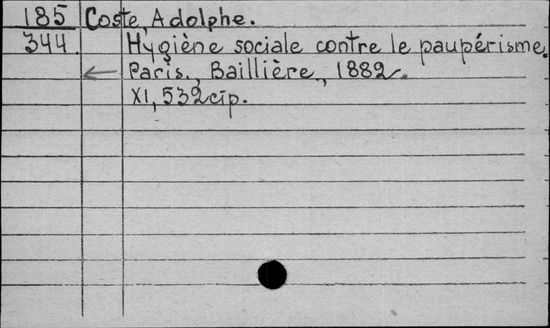 185 Coste, Adolphe.
344 Hygiène sociale contre le paupérisme.
Paris., Baillière., 1882.
XI, 532 cтр.